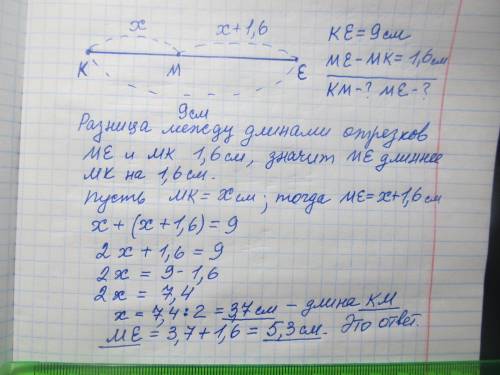 x x+1,6
K M E
9см
KE=9см
ME-MK=1,6см
KM-? ME-?
Разница между длинами отрезков
ME и MK 1,6см, значит ME длиннее
MK на 1,6см.
Пусть MK=xсм; тогда ME=x+1,6см
x+(x+1,6)=9
2x+1,6=9
2x=9-1,6
2x=7,4
x=7,4:2=3,7см - длина KM
ME=3,7+1,6=5,3см. Это ответ.